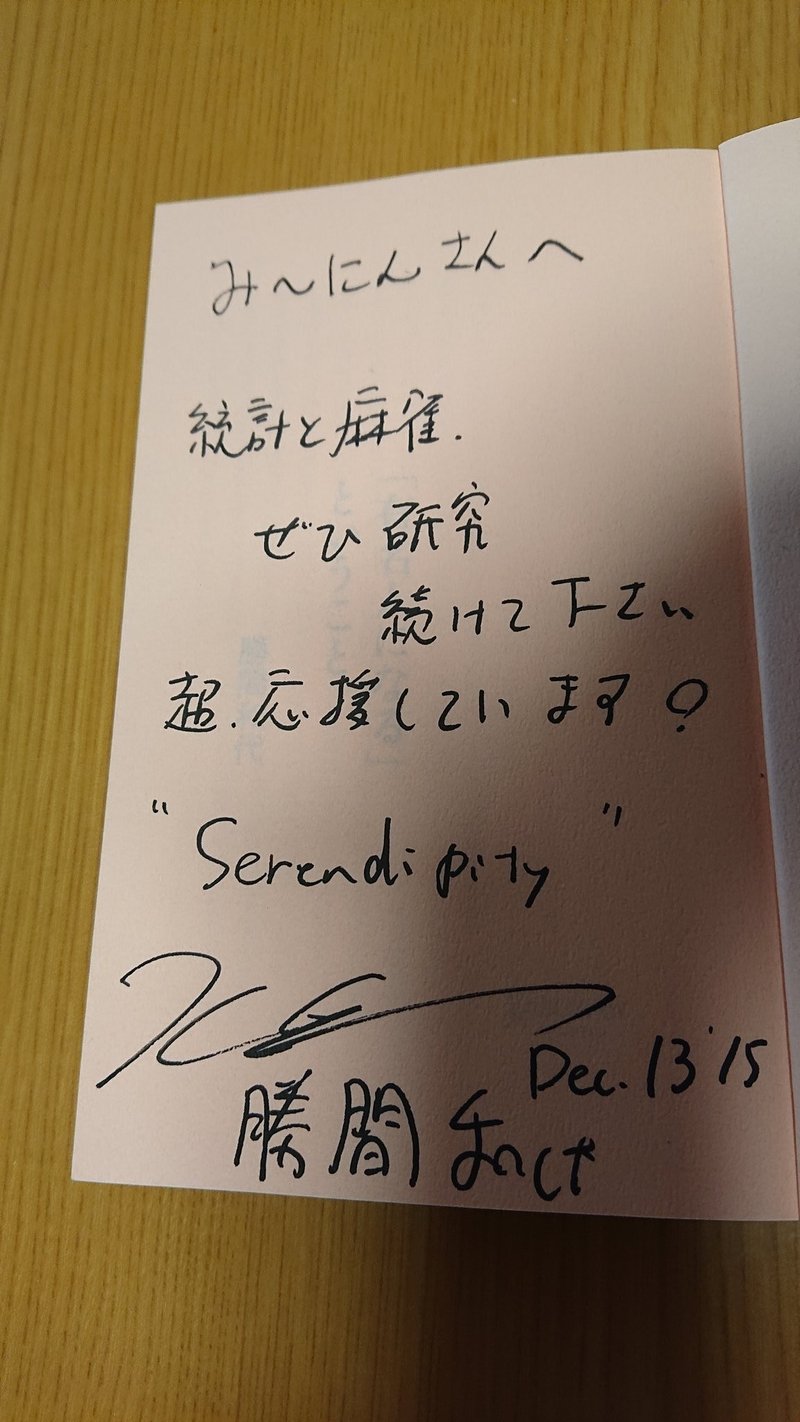 み〜にんさんへ
統計と麻雀.
ぜひ研究
続けて下さい
超.応援しています!
"Serendipity"
Dec. 13 '15
勝間和代